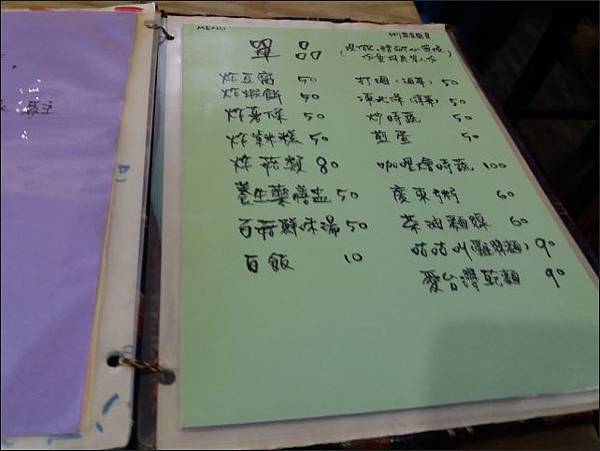 MENU
單品
炸豆腐 50
炸蝦餅 50
炸薯條 50
炸米糕 50
炸菇類 80
養生藥膳盅 50
百菇鮮味湯 50
白飯 10
50
50
炒時蔬 50
煎蛋 50
咖哩燴時蔬 100
廣東粥 60
茶油麵線 60
咕咕叫(雞絲麵) 90
愛台灣乾麵 90